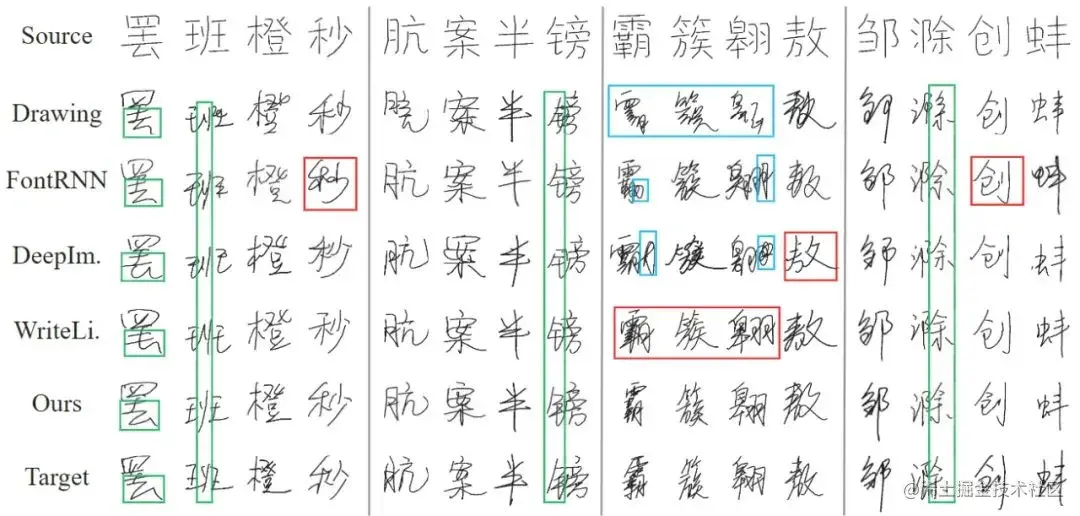 Source 罢 班 橙 秒 肮 案 半 镑 霸 簇 翱 敖 邹 滁 创 蚌
Drawing 罢 班 橙 秒 肮 案 半 镑 霸 簇 翱 敖 邹 滁 创 蚌
FontRNN 罢 班 橙 秒 肮 案 半 镑 霸 簇 翱 敖 邹 滁 创 蚌
DeepIm. 罢 班 橙 秒 肮 案 半 镑 霸 簇 翱 敖 邹 滁 创 蚌
WriteLi. 罢 班 橙 秒 肮 案 半 镑 霸 簇 翱 敖 邹 滁 创 蚌
Ours 罢 班 橙 秒 肮 案 半 镑 霸 簇 翱 敖 邹 滁 创 蚌
Target 罢 班 橙 秒 肮 案 半 镑 霸 簇 翱 敖 邹 滁 创 蚌
@稀土掘金技术社区